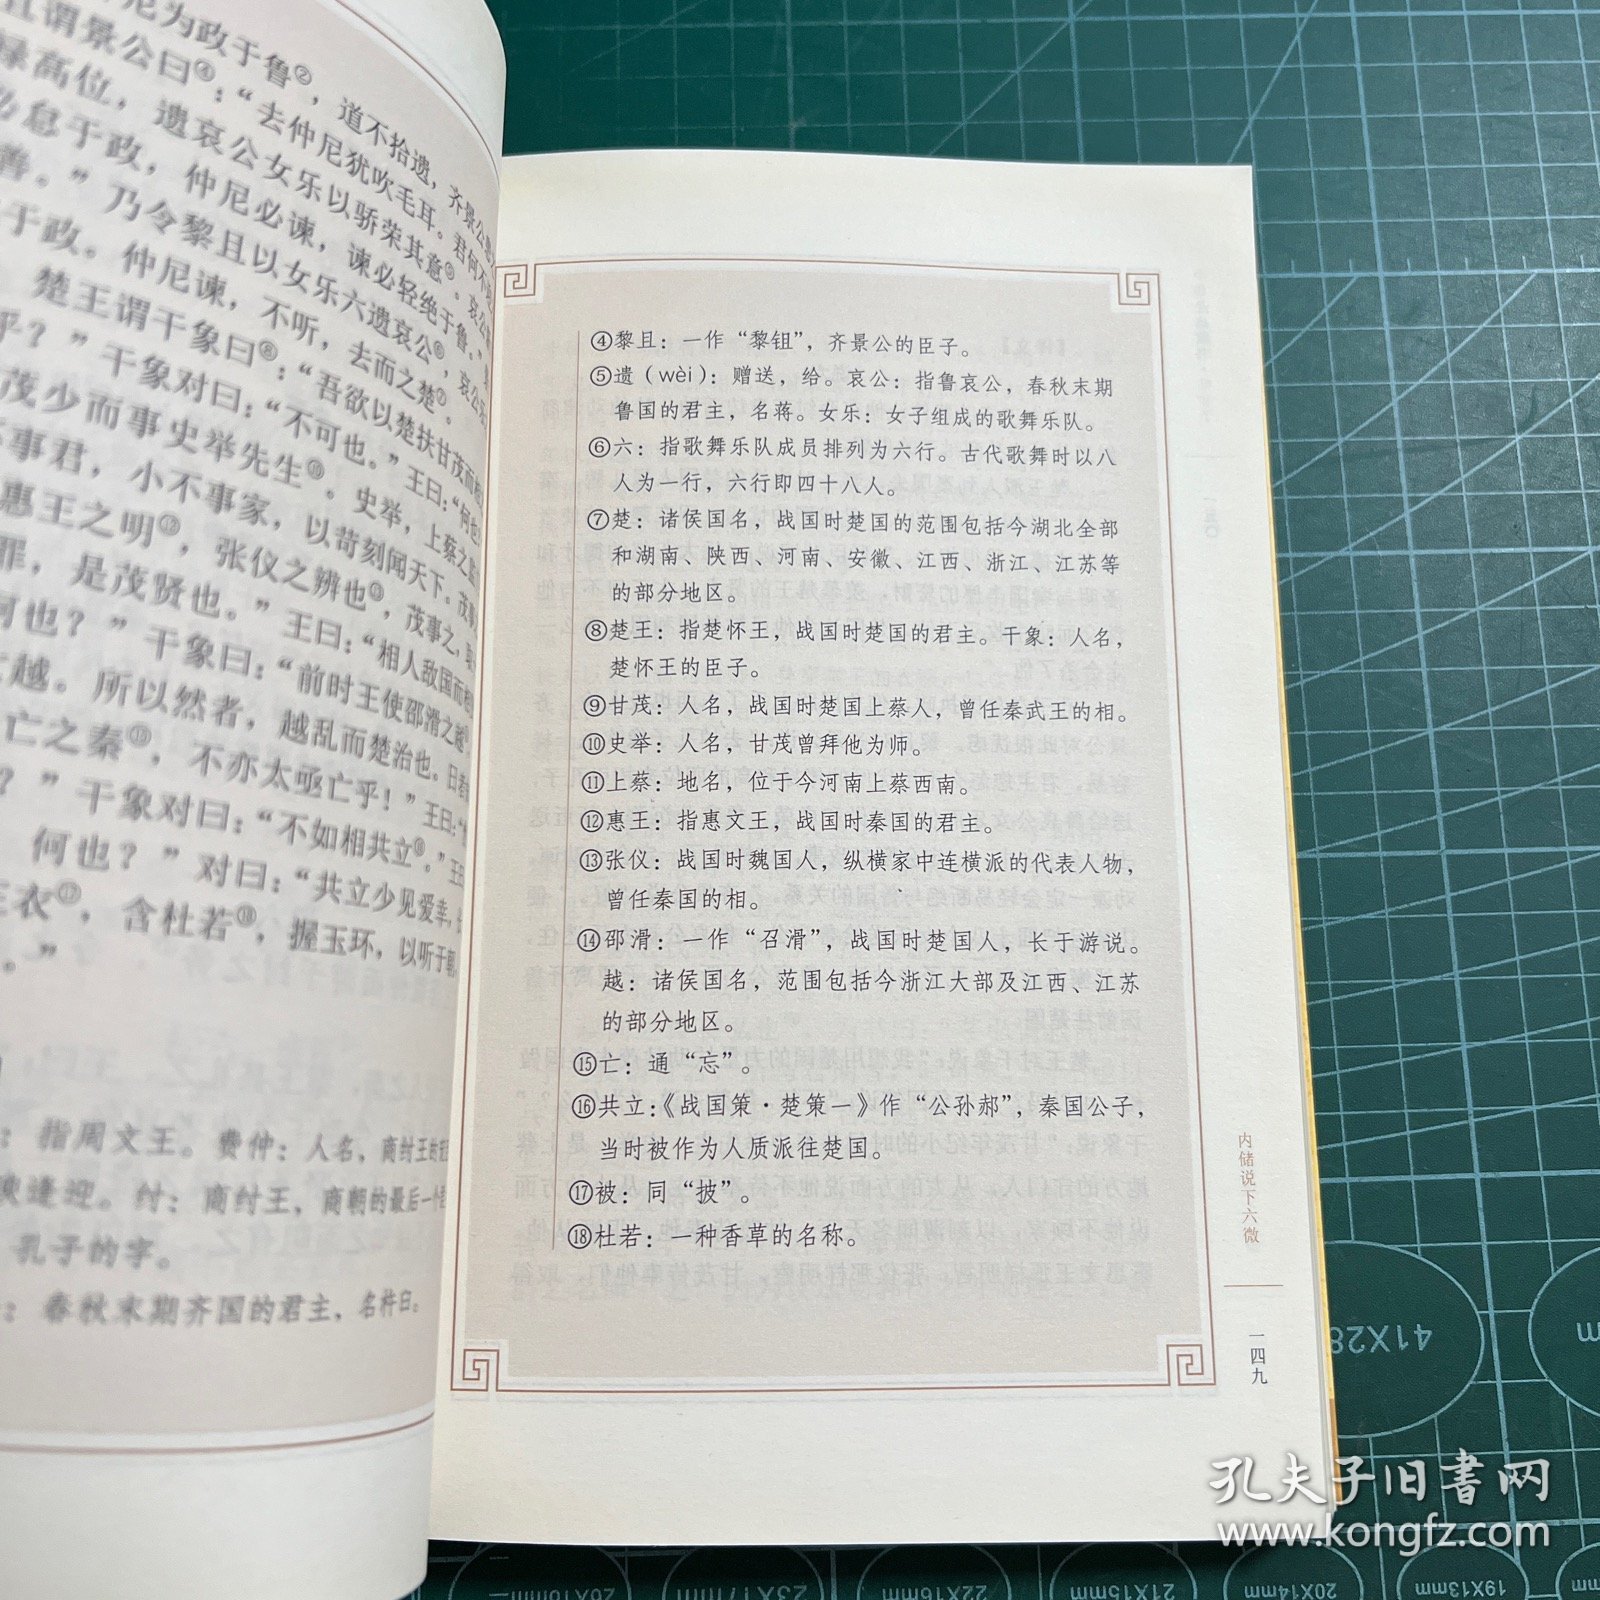 尼为政于鲁②，道不拾遗，齐景公
且谓景公曰④：“去仲尼犹吹毛耳。君何不
禄高位，遗哀公女乐以骄荣其意⑤。哀公
必怠于政，仲尼必谏，谏必轻绝于鲁。”
善。”乃令黎且以女乐六遗哀公⑥，哀公
于政。仲尼谏，不听，去而之楚⑦。
楚王谓干象曰⑧：“吾欲以楚扶甘茂而
乎？”干象对曰：“不可也。”王曰：“何也
茂少而事史举先生⑩。史举，上蔡之监
事君，小不事家，以苛刻闻天下。茂事
惠王之明⑫，张仪之辨也⑬，茂事之，
罪，是茂贤也。”王曰：“相人敌国而
何也？”干象曰：“前时王使邵滑之越
亡越。所以然者，越乱而楚治也。日者
亡之秦⑮，不亦太亟亡乎！”王曰：“
？”干象对曰：“不如相共立⑯。”王曰
何也？”对曰：“共立少见爱幸，
衣⑰，含杜若⑱，握玉环，以听于朝
。”
：指周文王。费仲：人名，商纣王的
谀逢迎。纣：商纣王，商朝的最后一
孔子的字。
：春秋末期齐国的君主，名杵臼。
④黎且：一作“黎钼”，齐景公的臣子。
⑤遗（wèi）：赠送，给。哀公：指鲁哀公，春秋末期
鲁国的君主，名蒋。女乐：女子组成的歌舞乐队。
⑥六：指歌舞乐队成员排列为六行。古代歌舞时以八
人为一行，六行即四十八人。
⑦楚：诸侯国名，战国时楚国的范围包括今湖北全部
和湖南、陕西、河南、安徽、江西、浙江、江苏等
的部分地区。
⑧楚王：指楚怀王，战国时楚国的君主。干象：人名，
楚怀王的臣子。
⑨甘茂：人名，战国时楚国上蔡人，曾任秦武王的相。
⑩史举：人名，甘茂曾拜他为师。
⑪上蔡：地名，位于今河南上蔡西南。
⑫惠王：指惠文王，战国时秦国的君主。
⑬张仪：战国时魏国人，纵横家中连横派的代表人物，
曾任秦国的相。
⑭邵滑：一作“召滑”，战国时楚国人，长于游说。
越：诸侯国名，范围包括今浙江大部及江西、江苏
的部分地区。
⑮亡：通“忘”。
⑯共立：《战国策·楚策一》作“公孙郝”，秦国公子，
当时被作为人质派往楚国。
⑰被：同“披”。
⑱杜若：一种香草的名称。
内储说下六微
一四九
孔夫子旧书网
www.kongfz.com